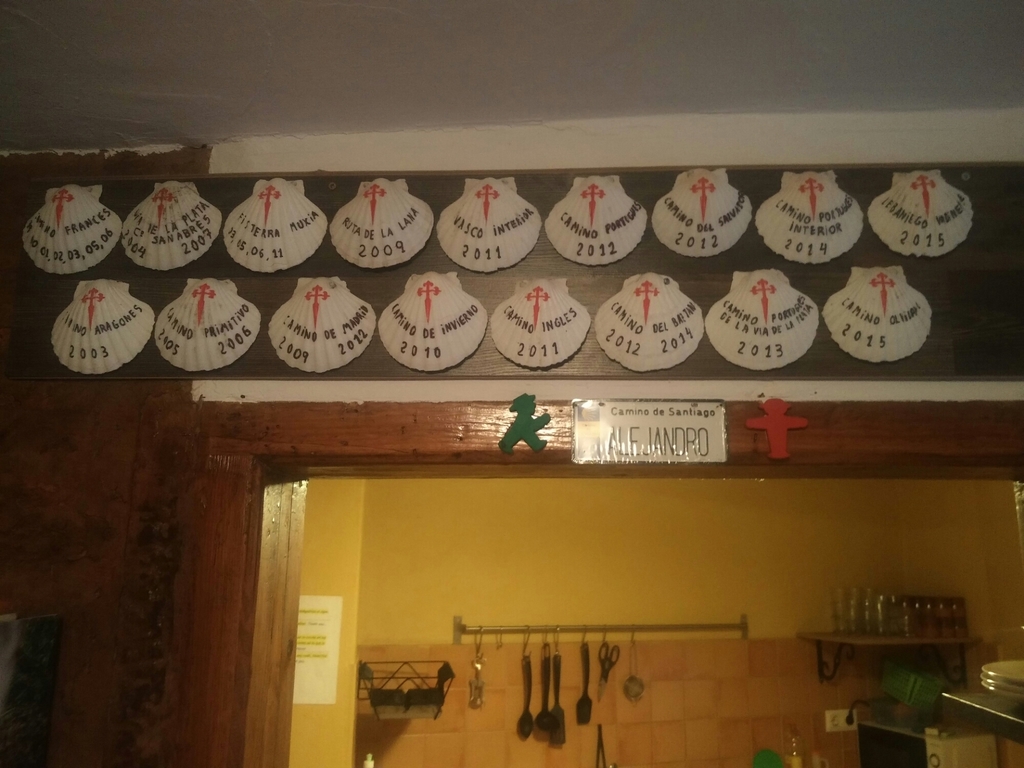 FRANCES
01,02,03,05,06
LA PLATA
SANABRES
2004 2007
FISTERRA MUXIA
05,06,11
RUTA DE LA LANA
2009
VASCO INTERIOR
2011
CAMINO PORTUGUES
2012
CAMINO DEL SALVADOR
2012
CAMINO PORTUGUES
INTERIOR
2014
2015
CAMINO ARAGONES
2003
CAMINO PRIMITIVO
2005 2006
CAMINO DE MADRID
2009 2012
CAMINO DE INVIERNO
2010
CAMINO INGLES
2011
CAMINO DEL BAZTAN
2012 2014
CAMINO PORTUGUES
DE LA VIA DE LA PLATA
2013
CAMINO OLVIDADO
2015
Camino de Santiago
ALEJANDRO